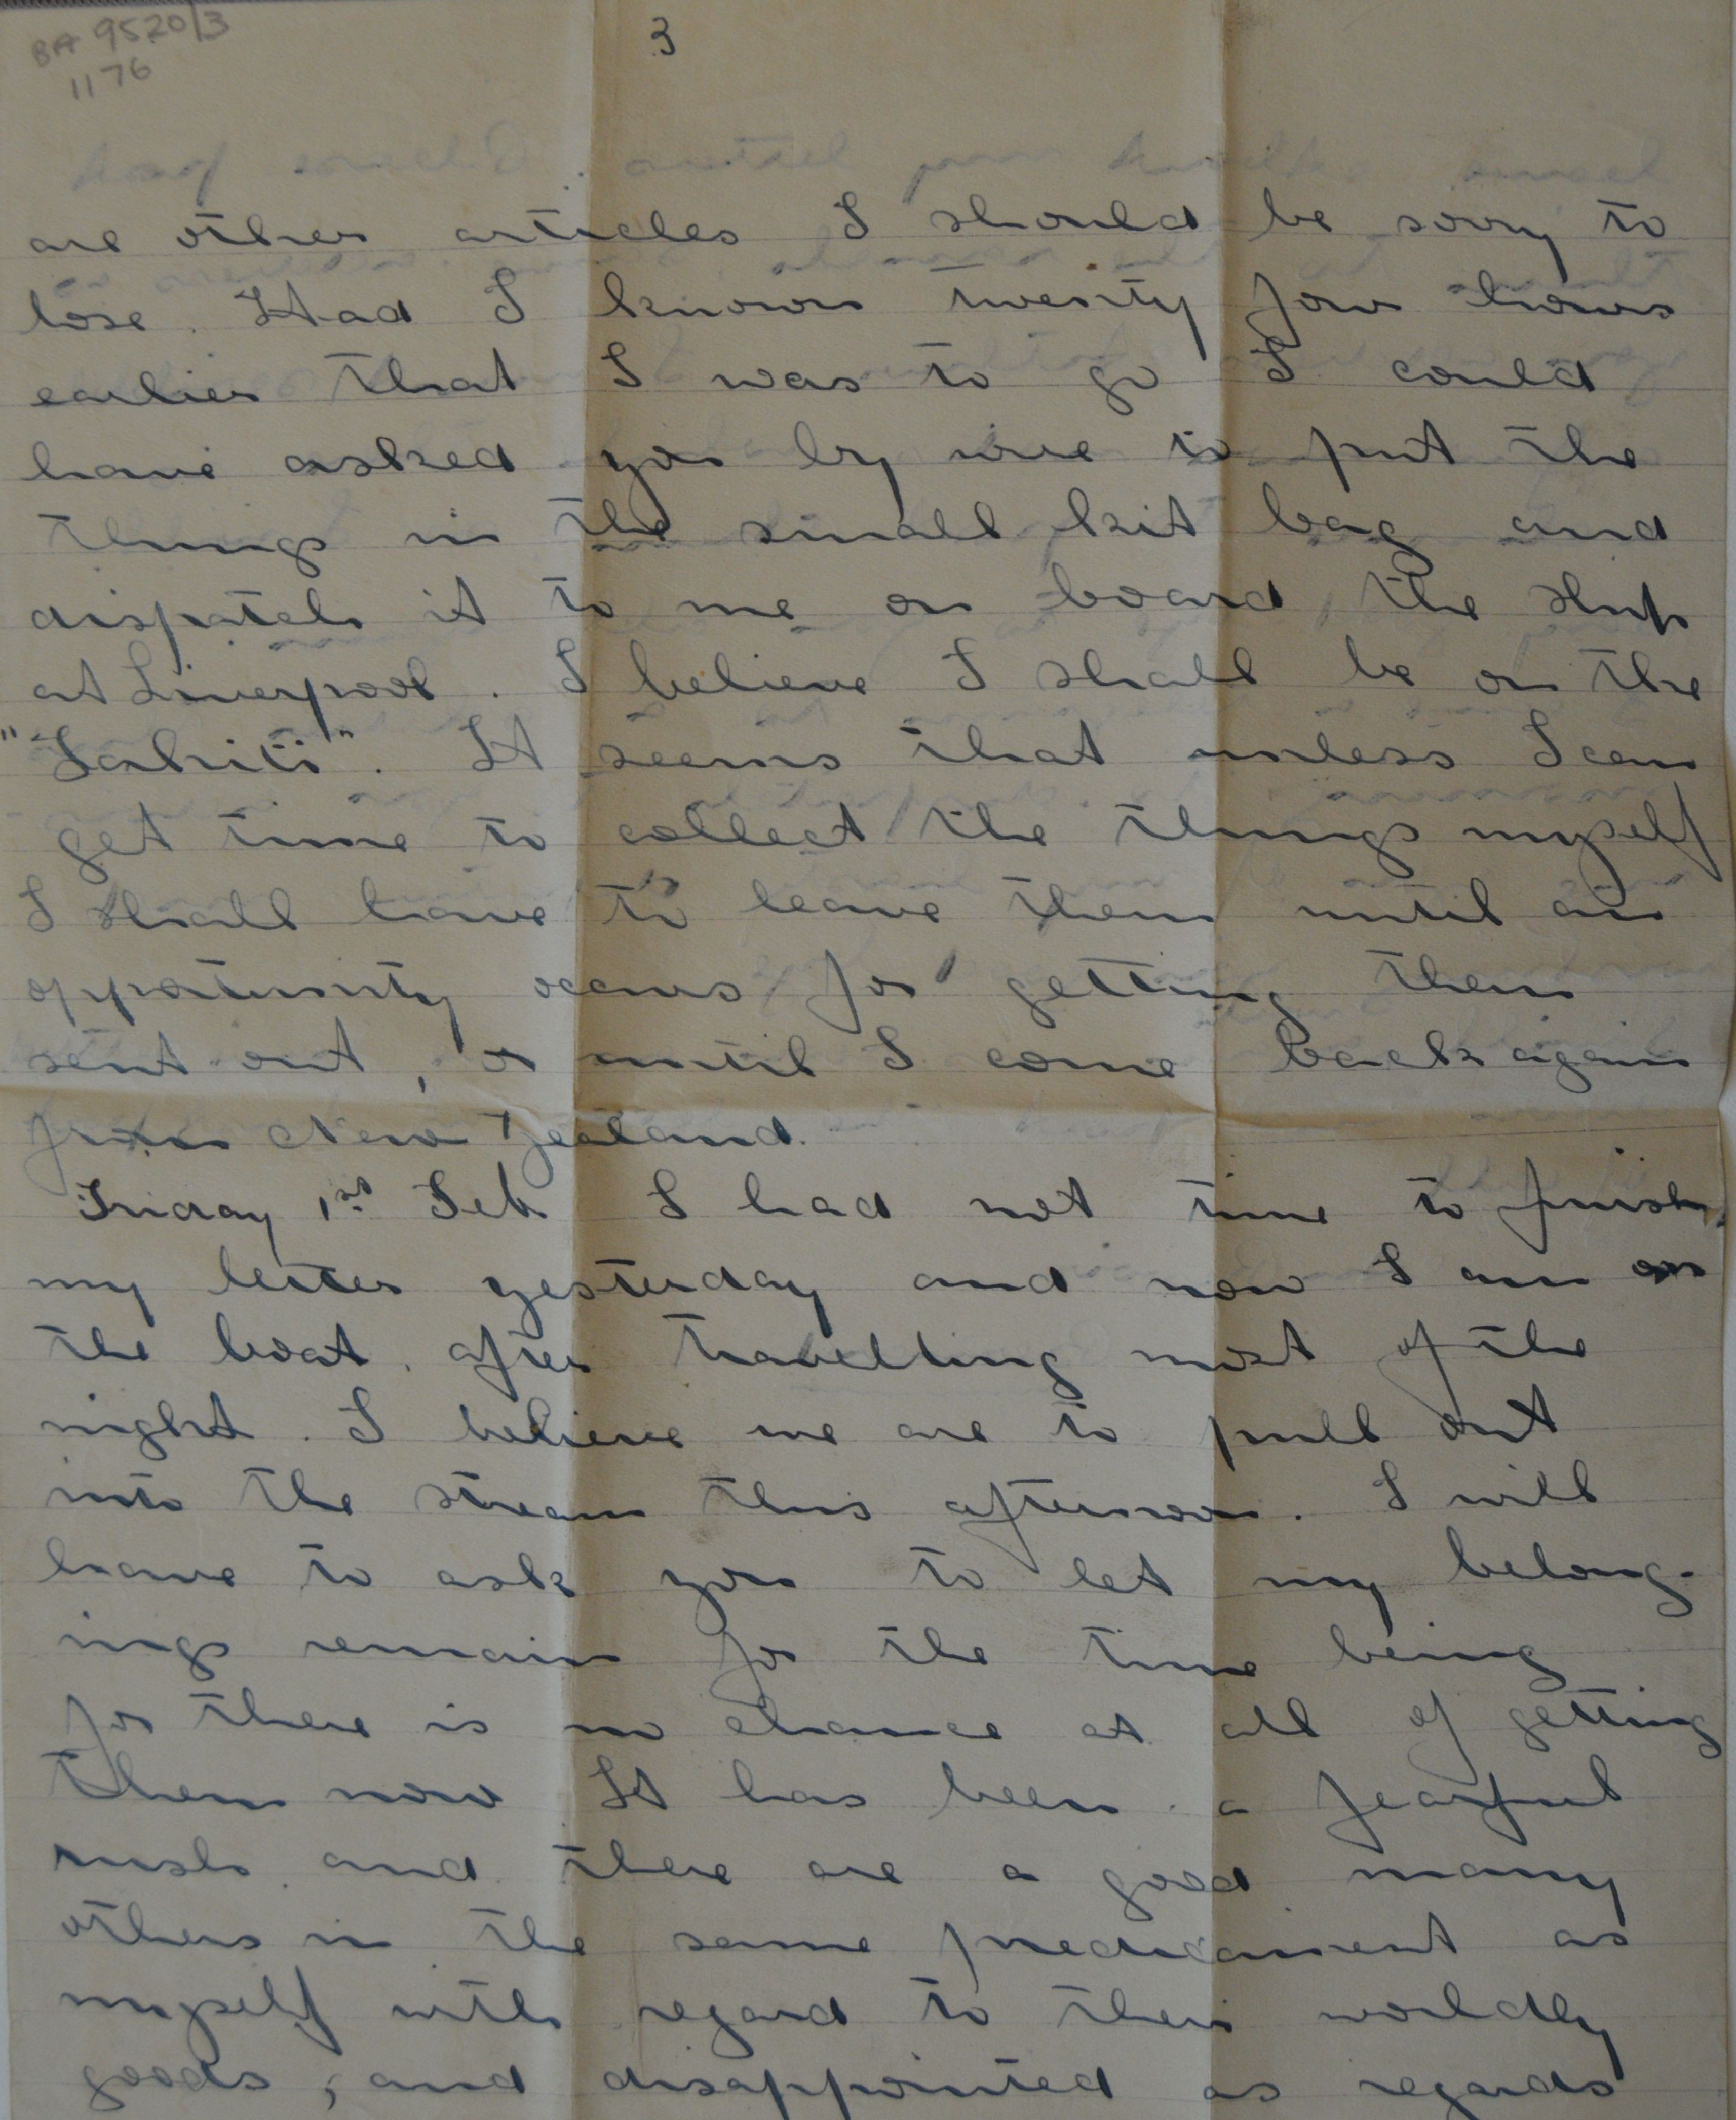 BA 9520/3
1176
3
are other articles I should be sorry to
lose. Had I known twenty four hours
earlier that I was to go I could
have asked you by wire to put the
things in the small kit bag and
dispatch it to me on board the ship
at Liverpool. I believe I shall be on the
"Tahiti". It seems that unless I can
get time to collect the things myself
I shall have to leave them until an
opportunity occurs for getting them
sent out, or until I come back again
from New Zealand.
Friday 1st Feb I had not time to finish
my letter yesterday and now I am on
the boat after travelling most of the
night. I believe we are to pull out
into the stream this afternoon. I will
have to ask you to let my belong-
ings remain for the time being
for there is no chance at all of getting
them now It has been a fearful
rush and there are a good many
others in the same predicament as
myself with regard to their worldly
goods, and disappointed as regards